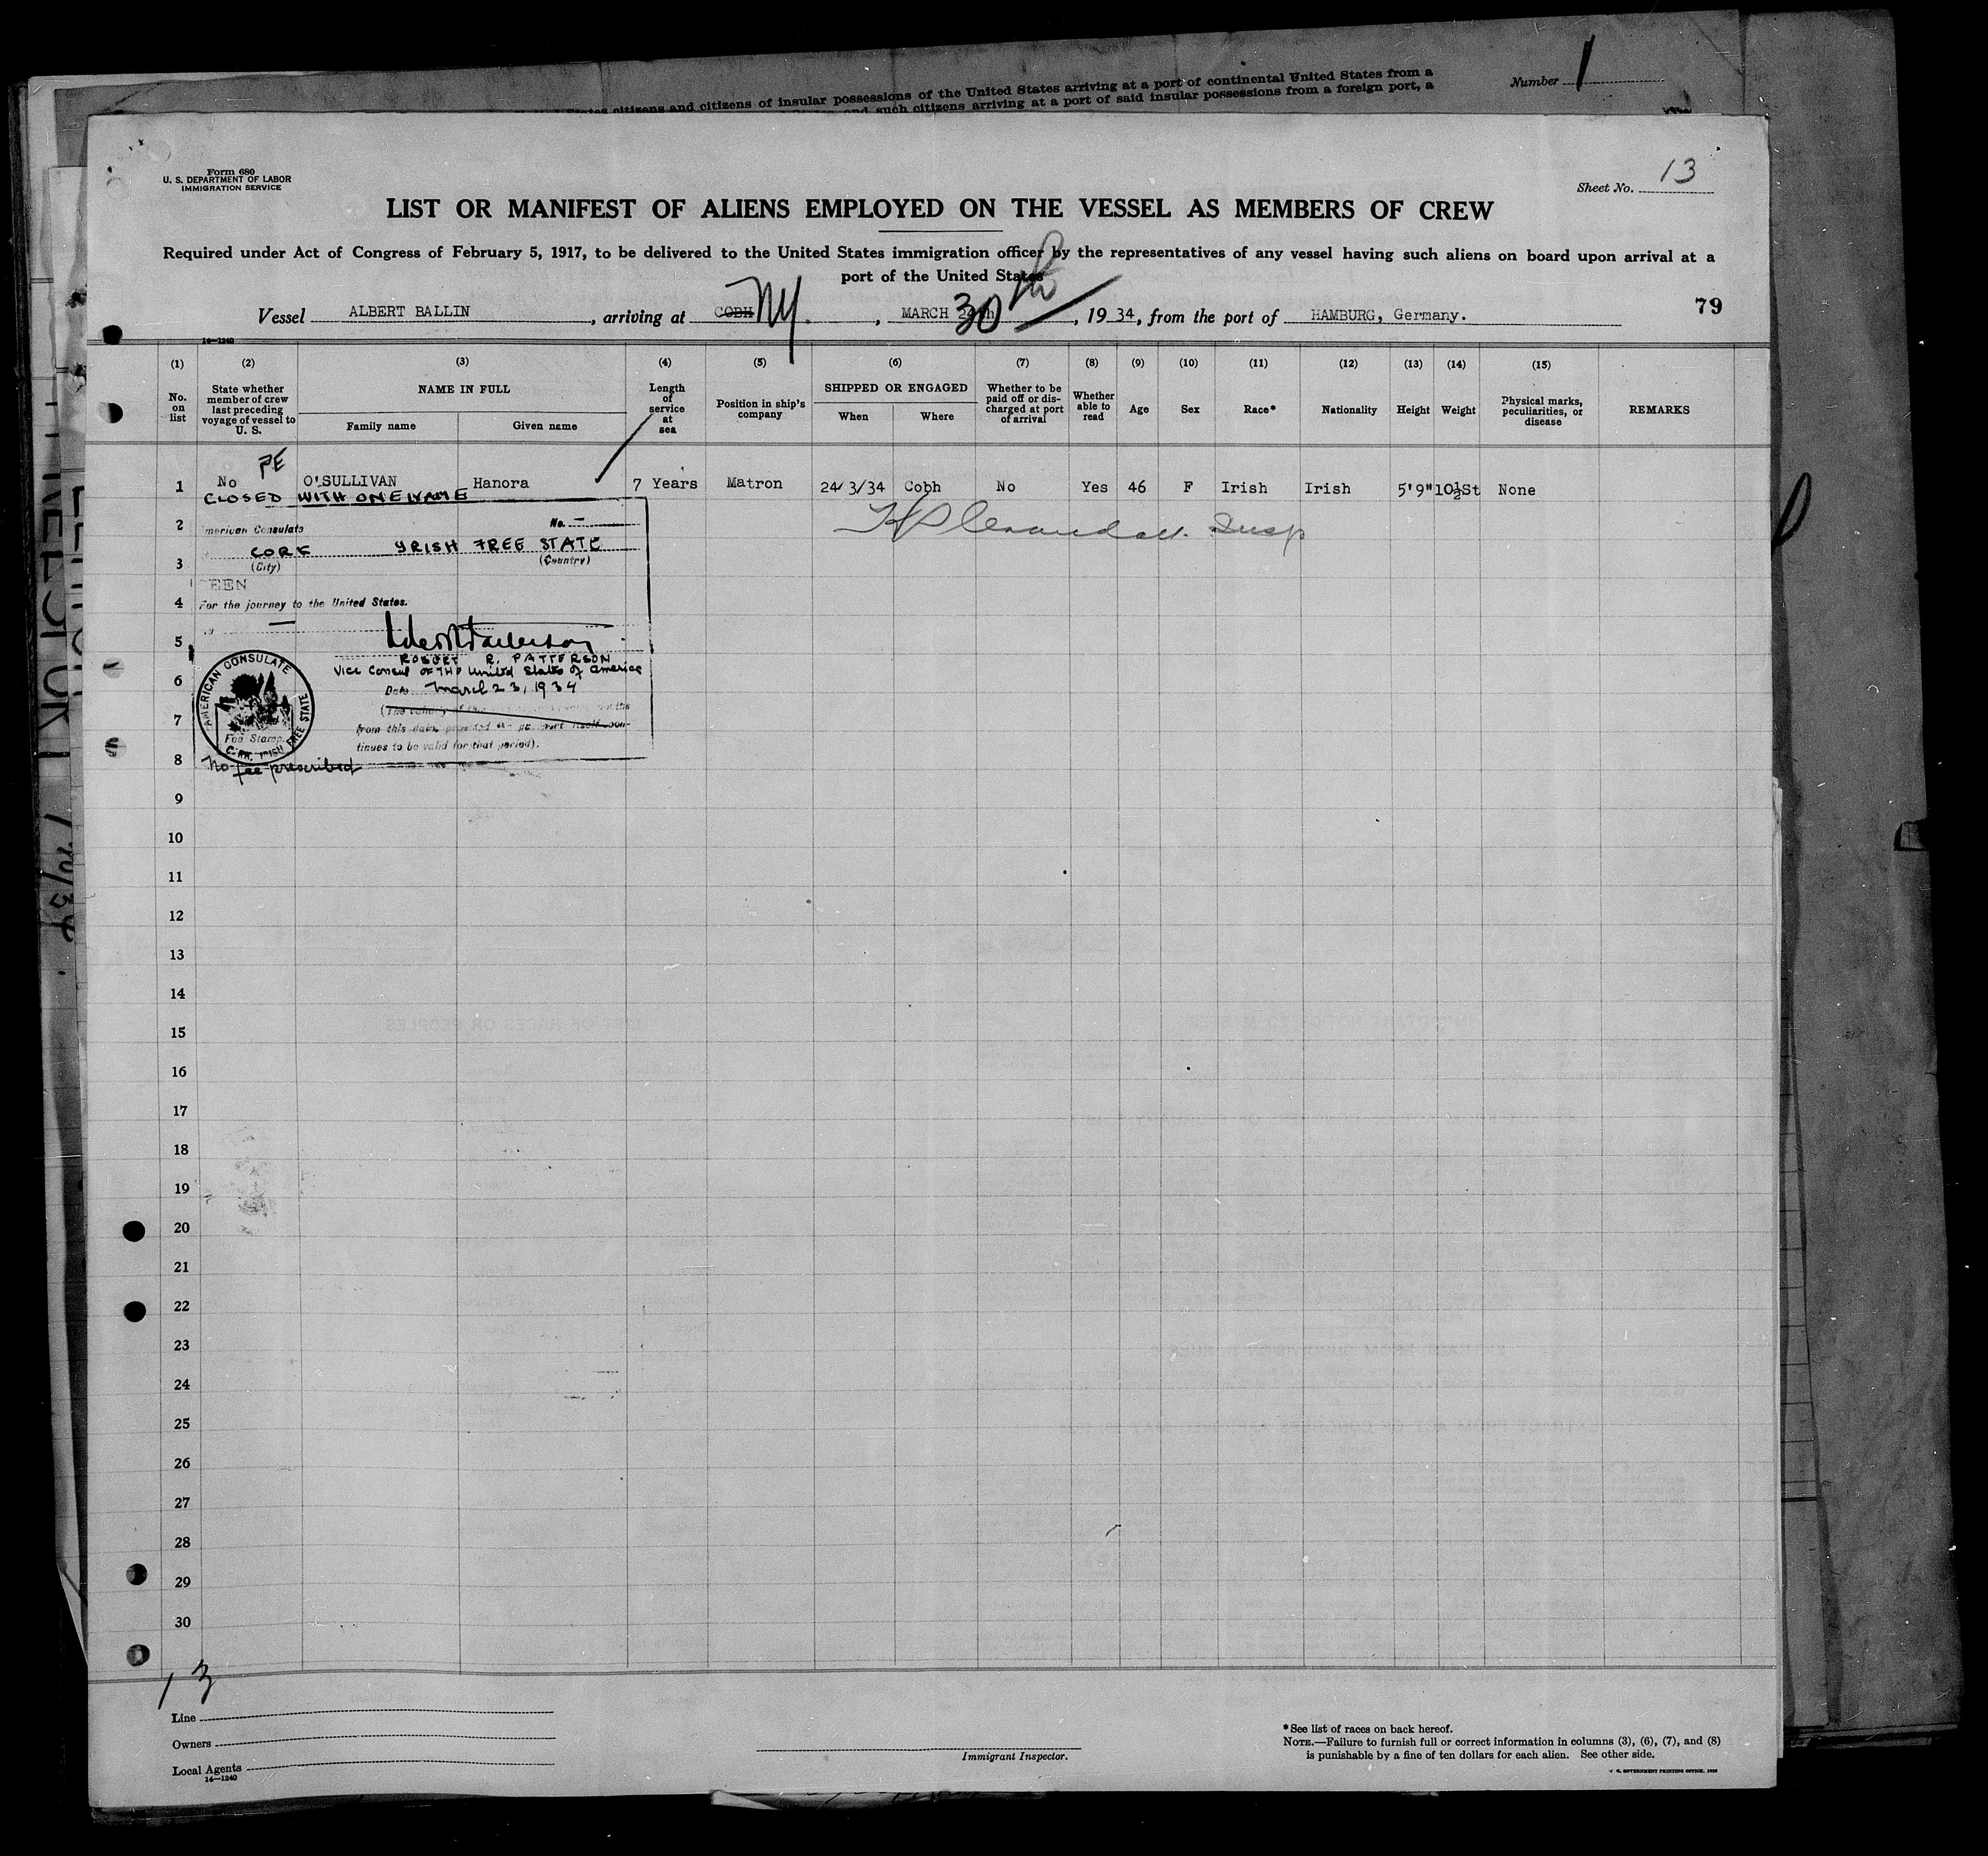 States citizens and citizens of insular possessions of the United States arriving at a port of continental United States from a
and such citizens arriving at a port of said insular possessions from a foreign port, a
Number 1
Form 680
U. S. DEPARTMENT OF LABOR
IMMIGRATION SERVICE
Sheet No. 13
LIST OR MANIFEST OF ALIENS EMPLOYED ON THE VESSEL AS MEMBERS OF CREW
Required under Act of Congress of February 5, 1917, to be delivered to the United States immigration officer by the representatives of any vessel having such aliens on board upon arrival at a
port of the United States
Vessel ALBERT BALLIN, arriving at COBH NY., MARCH 30th, 1934, from the port of HAMBURG, Germany.
79
14—1240
(1) (2) (3) (4) (5) (6) (7) (8) (9) (10) (11) (12) (13) (14) (15)
No. on list
State whether member of crew last preceding voyage of vessel to U. S.
NAME IN FULL
Family name
Given name
Length of service at sea
Position in ship's company
SHIPPED OR ENGAGED
When
Where
Whether to be paid off or discharged at port of arrival
Whether able to read
Age
Sex
Race*
Nationality
Height
Weight
Physical marks, peculiarities, or disease
REMARKS
PE
1 No O'SULLIVAN Hanora 7 Years Matron 24/3/34 Cobh No Yes 46 F Irish Irish 5'9" 10½St None
CLOSED WITH ONE NAME
2
American Consulate No. —
CORK IRISH FREE STATE
3
(City) (Country)
SEEN
4
For the journey to the United States.
5
ROBERT R. PATTERSON
Vice Consul OF THE United States of America
6
Date March 23, 1934
7
from this date, provided
tinues to be valid for that period).
AMERICAN CONSULATE
Fee Stamp
CORK, IRISH FREE STATE
8
No fee prescribed
Insp
9
10
11
12
13
14
15
16
17
18
19
20
21
22
23
24
25
26
27
28
29
30
13
Line
Owners
Local Agents
14—1240
Immigrant Inspector.
*See list of races on back hereof.
NOTE.—Failure to furnish full or correct information in columns (3), (6), (7), and (8)
is punishable by a fine of ten dollars for each alien. See other side.